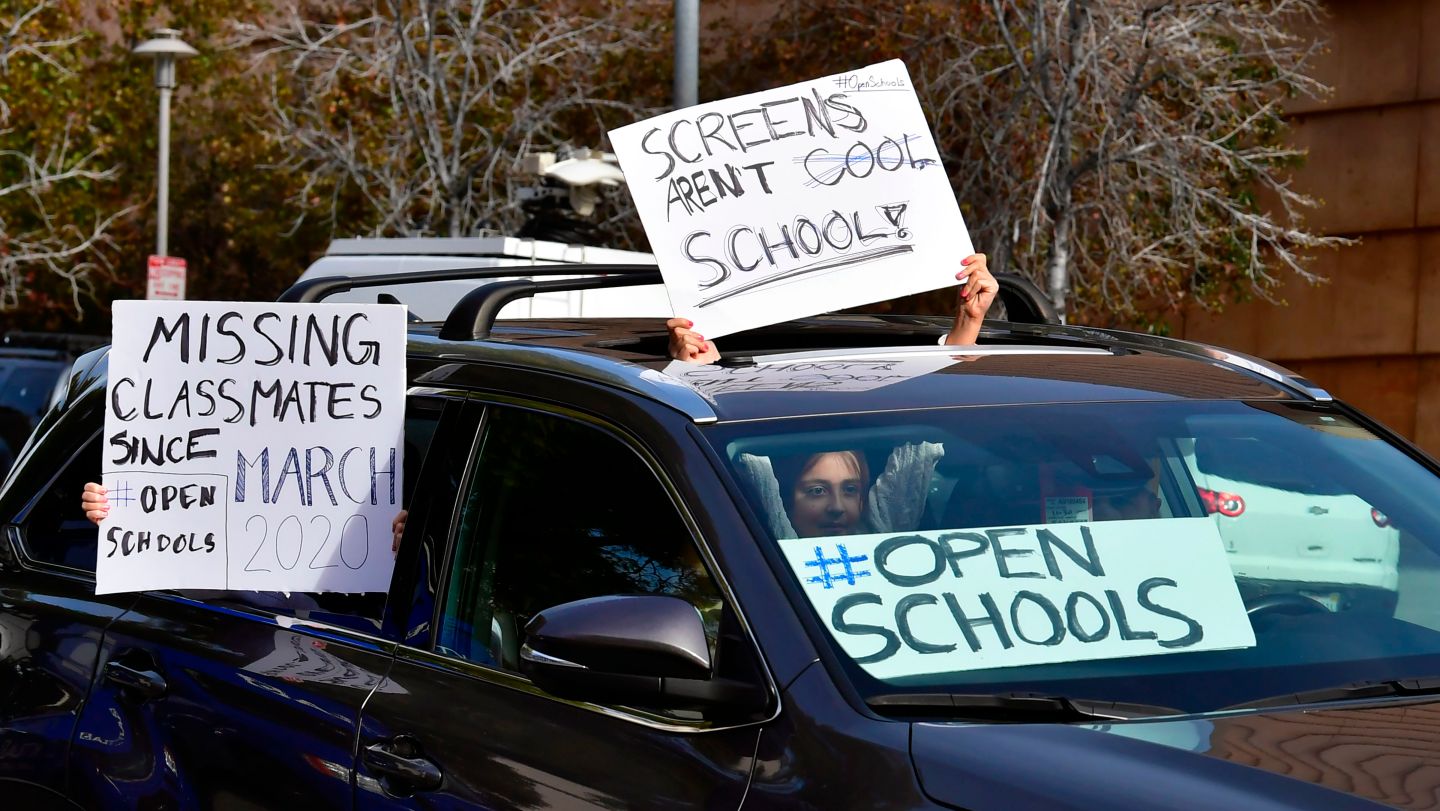 MISSING
CLASSMATES
SINCE
MARCH
2020
#OPEN
SCHOOLS
#OpenSchools
SCREENS
AREN'T COOL
SCHOOL!
#OPEN
SCHOOLS